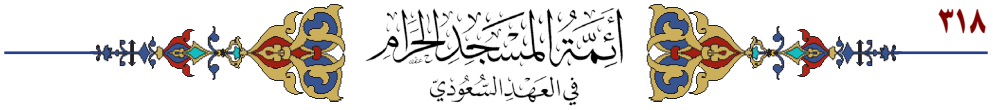 ٣١٨
أَئِمَّةُ المَسْجِدِ الحَرَامِ
فِي العَهْدِ السُّعُودِيِّ